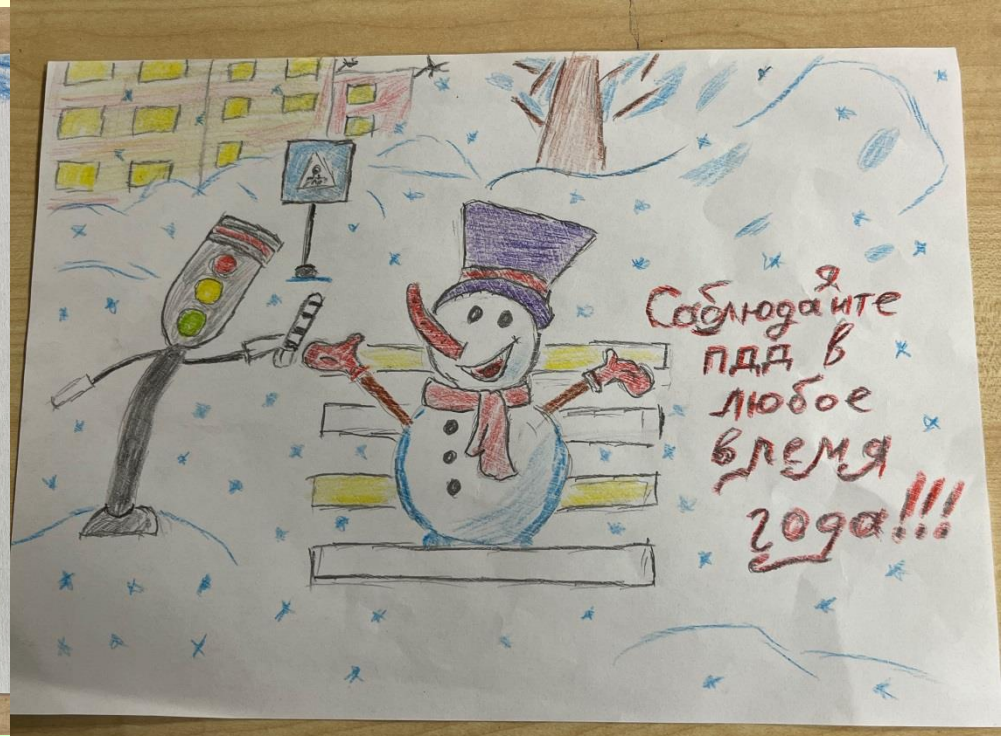 Соблюдайте
пдд в
любое
время
года!!!